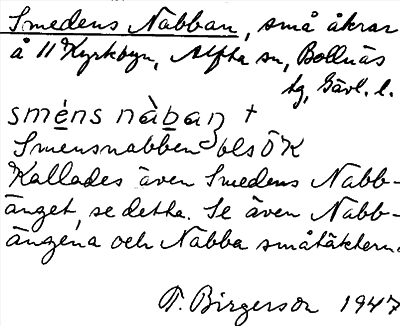 Smedens Nabban, små åkrar
å 11 Kyrkbyn, Alfta sn, Bollnäs
tg, Gävl. l.
sméns nàban +
Smensnabben bls ÖK
Kallades även Smedens Nabb-
änget, se detta. Se även Nabb-
ängena och Nabba småtäkterna.
F. Birgerson 1947